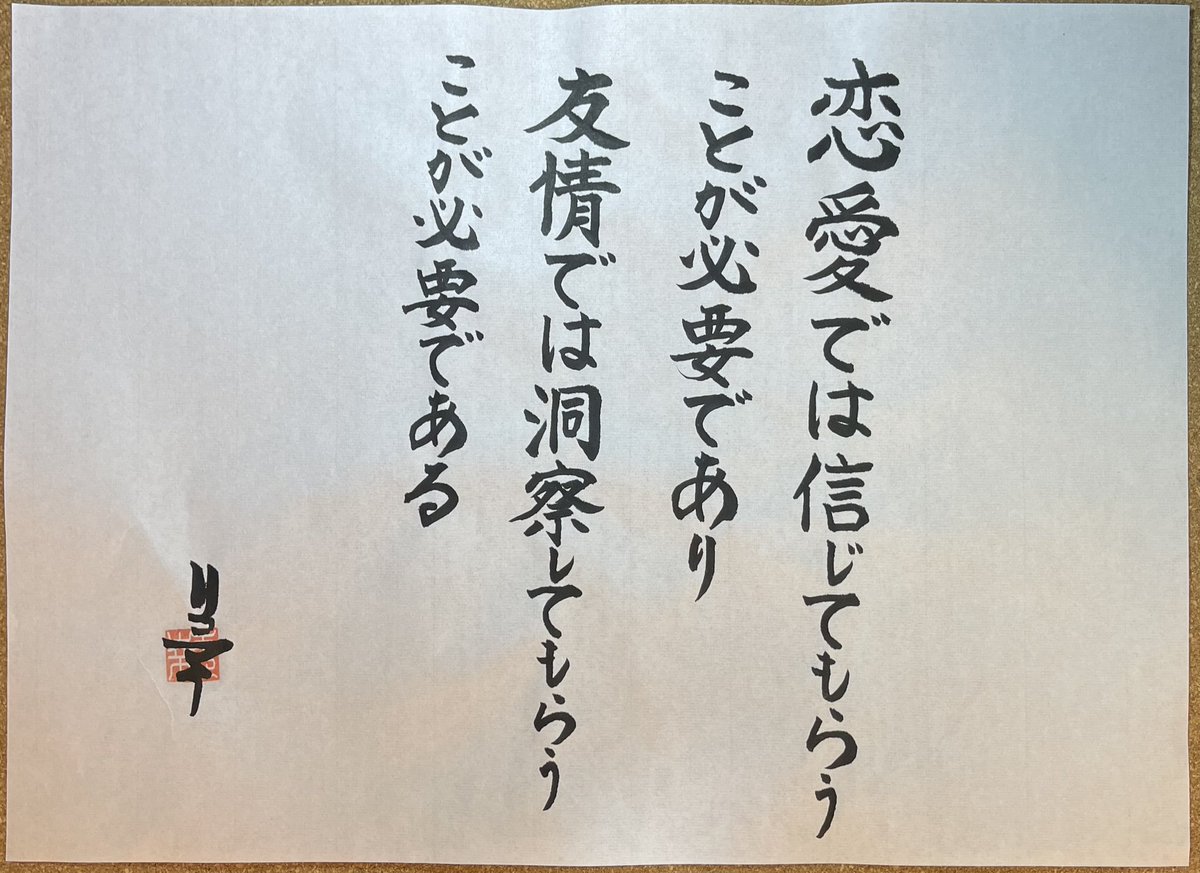 恋愛では信じてもらう
ことが必要であり
友情では洞察してもらう
ことが必要である